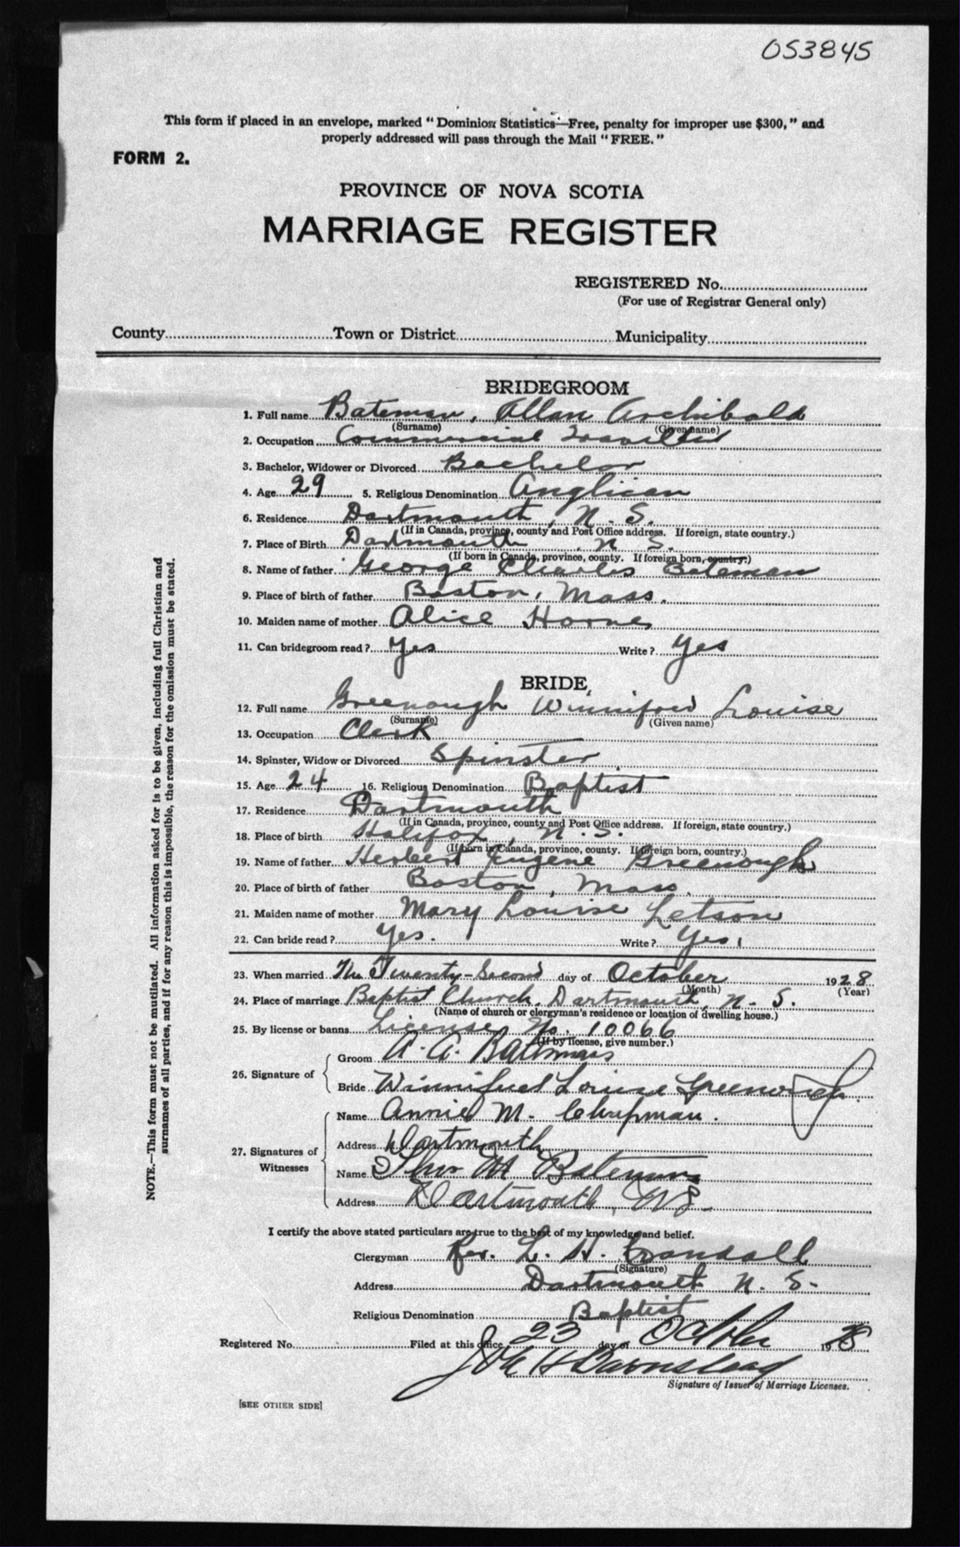 053845
This form if placed in an envelope, marked "Dominion Statistics—Free, penalty for improper use $300," and
properly addressed will pass through the Mail "FREE."
FORM 2.
PROVINCE OF NOVA SCOTIA
MARRIAGE REGISTER
REGISTERED No.
(For use of Registrar General only)
County Town or District Municipality
BRIDEGROOM
1. Full name Bateman, Allan Archibald
(Surname) (Given name)
2. Occupation Commercial Traveller
3. Bachelor, Widower or Divorced Bachelor
4. Age 29 5. Religious Denomination Anglican
6. Residence Dartmouth, N. S.
(If in Canada, province, county and Post Office address. If foreign, state country.)
7. Place of Birth Dartmouth, N. S.
(If born in Canada, province, county. If foreign born, country.)
8. Name of father George Charles Bateman
9. Place of birth of father Boston, Mass.
10. Maiden name of mother Alice Horne
11. Can bridegroom read? Yes Write? Yes
BRIDE
12. Full name Greenough Winnifred Louise
(Surname) (Given name)
13. Occupation Clerk
14. Spinster, Widow or Divorced Spinster
15. Age 24 16. Religious Denomination Baptist
17. Residence Dartmouth
(If in Canada, province, county and Post Office address. If foreign, state country.)
18. Place of birth Halifax, N. S.
(If born in Canada, province, county. If foreign born, country.)
19. Name of father Herbert Eugene Greenough
20. Place of birth of father Boston, Mass.
21. Maiden name of mother Mary Louise Letson
22. Can bride read? Yes. Write? Yes.
23. When married The Twenty-Second day of October 1928
(Month) (Year)
24. Place of marriage Baptist Church, Dartmouth, N. S.
(Name of church or clergyman's residence or location of dwelling house.)
25. By license or banns License No. 10066
(If by license, give number.)
26. Signature of Groom A. A. Bateman
Bride Winnifred Louise Greenough.
27. Signatures of Witnesses Name Annie M. Chapman.
Address Dartmouth
Name Thos M Bateman
Address Dartmouth, NS.
I certify the above stated particulars are true to the best of my knowledge and belief.
Clergyman Rev. L. H. Crandall
(Signature)
Address Dartmouth N. S.
Religious Denomination Baptist
Registered No. Filed at this office 23 day of October 1928
Signature of Issuer of Marriage Licenses.
[SEE OTHER SIDE]
NOTE.—This form must not be mutilated. All information asked for is to be given, including full Christian and
surnames of all parties, and if for any reason this is impossible, the reason for the omission must be stated.